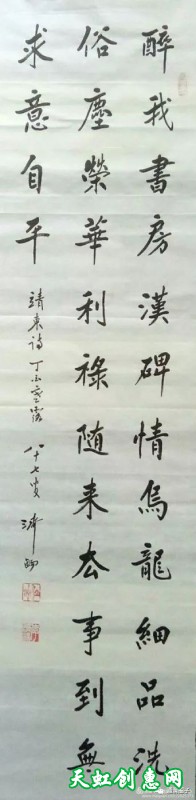 醉我書房漢碑情烏龍細品洗
俗塵榮華利祿随来去事到無
求意自平
靖東詩丁酉寒露八十七叟济
天虹创惠网